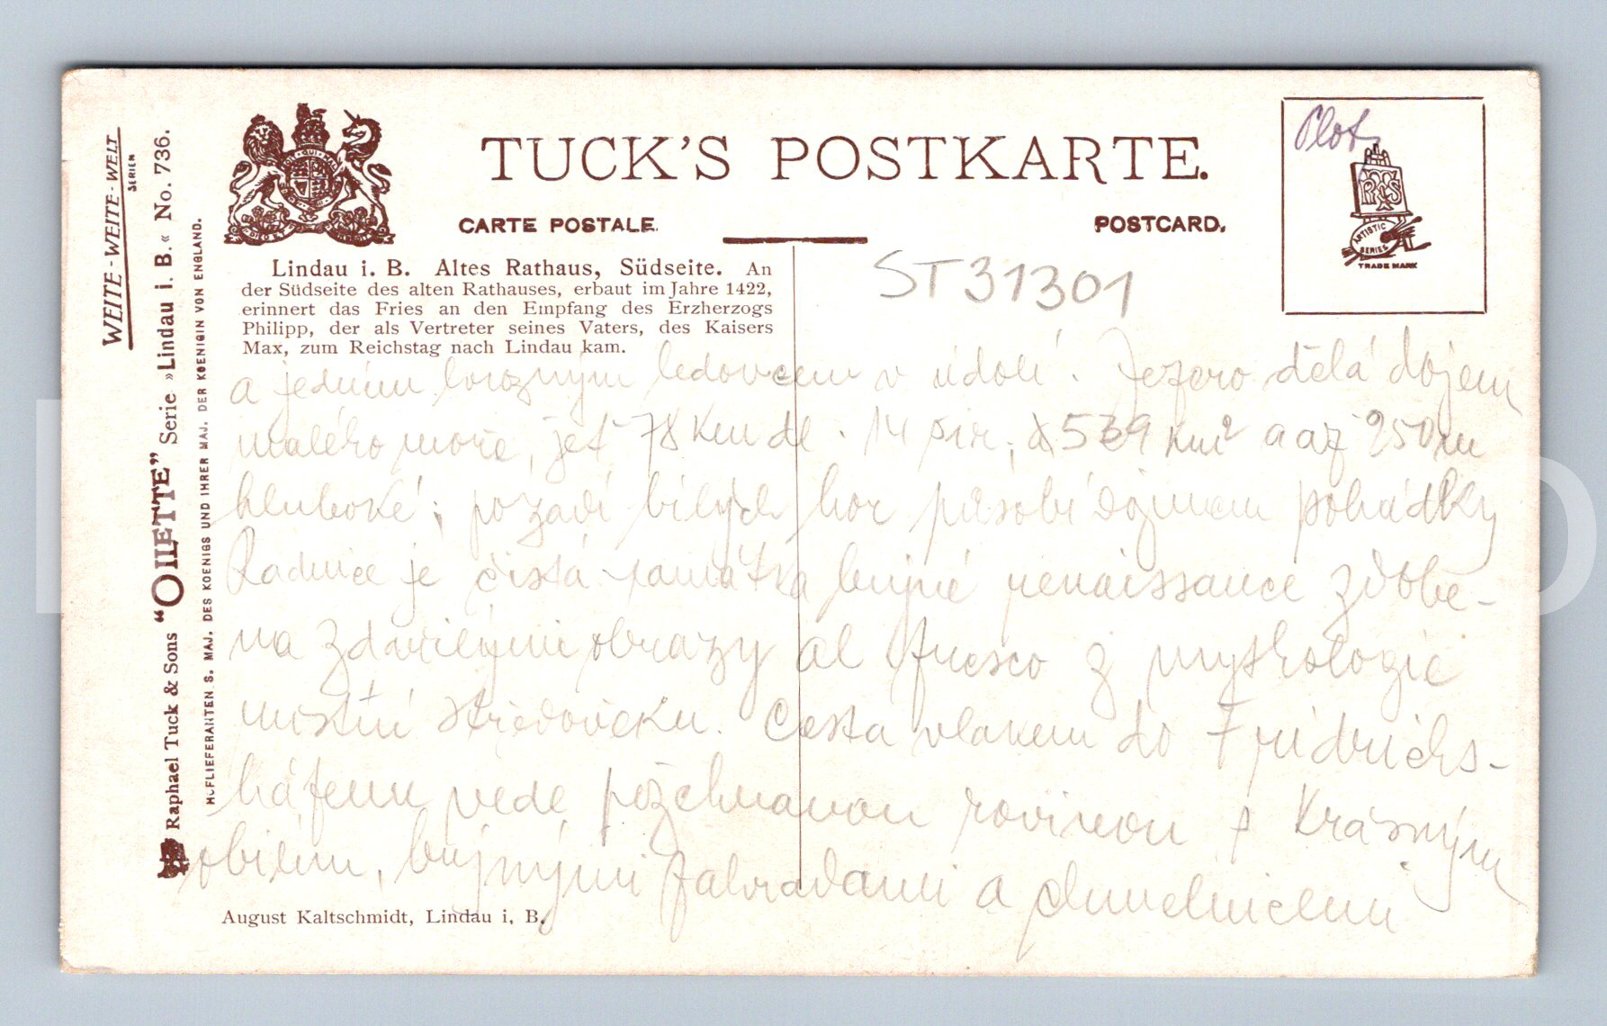 WEITE-WEITE-WELT
SERIEN
Raphael Tuck & Sons “OILETTE” Serie »Lindau i. B.« No. 736.
HOFLIEFERANTEN S. MAJ. DES KOENIGS UND IHRER MAJ. DER KOENIGIN VON ENGLAND.
TUCK'S POSTKARTE.
CARTE POSTALE.
POSTCARD.
Plot
ARTISTIC
SERIES
TRADE MARK
ST31301
Lindau i. B. Altes Rathaus, Südseite. An
der Südseite des alten Rathauses, erbaut im Jahre 1422,
erinnert das Fries an den Empfang des Erzherzogs
Philipp, der als Vertreter seines Vaters, des Kaisers
Max, zum Reichstag nach Lindau kam.
a jedním ledovcem v údolí. Jezero dělá dojem
malého moře, jest 78 km dl. 14 šir, 539 km² a až 250 m
hluboké; pozadí bílých hor působí dojmem pohádky
Radnice je čistá památka bujné renaissance zdobe-
na zdařilými obrazy al fresco z mythologie
místní středověku. Cesta vlakem do Fridrichs-
háfenu vede požehnanou rovinou s krásným
obilím, bujnými zahradami a chmelnicemi
August Kaltschmidt, Lindau i. B.